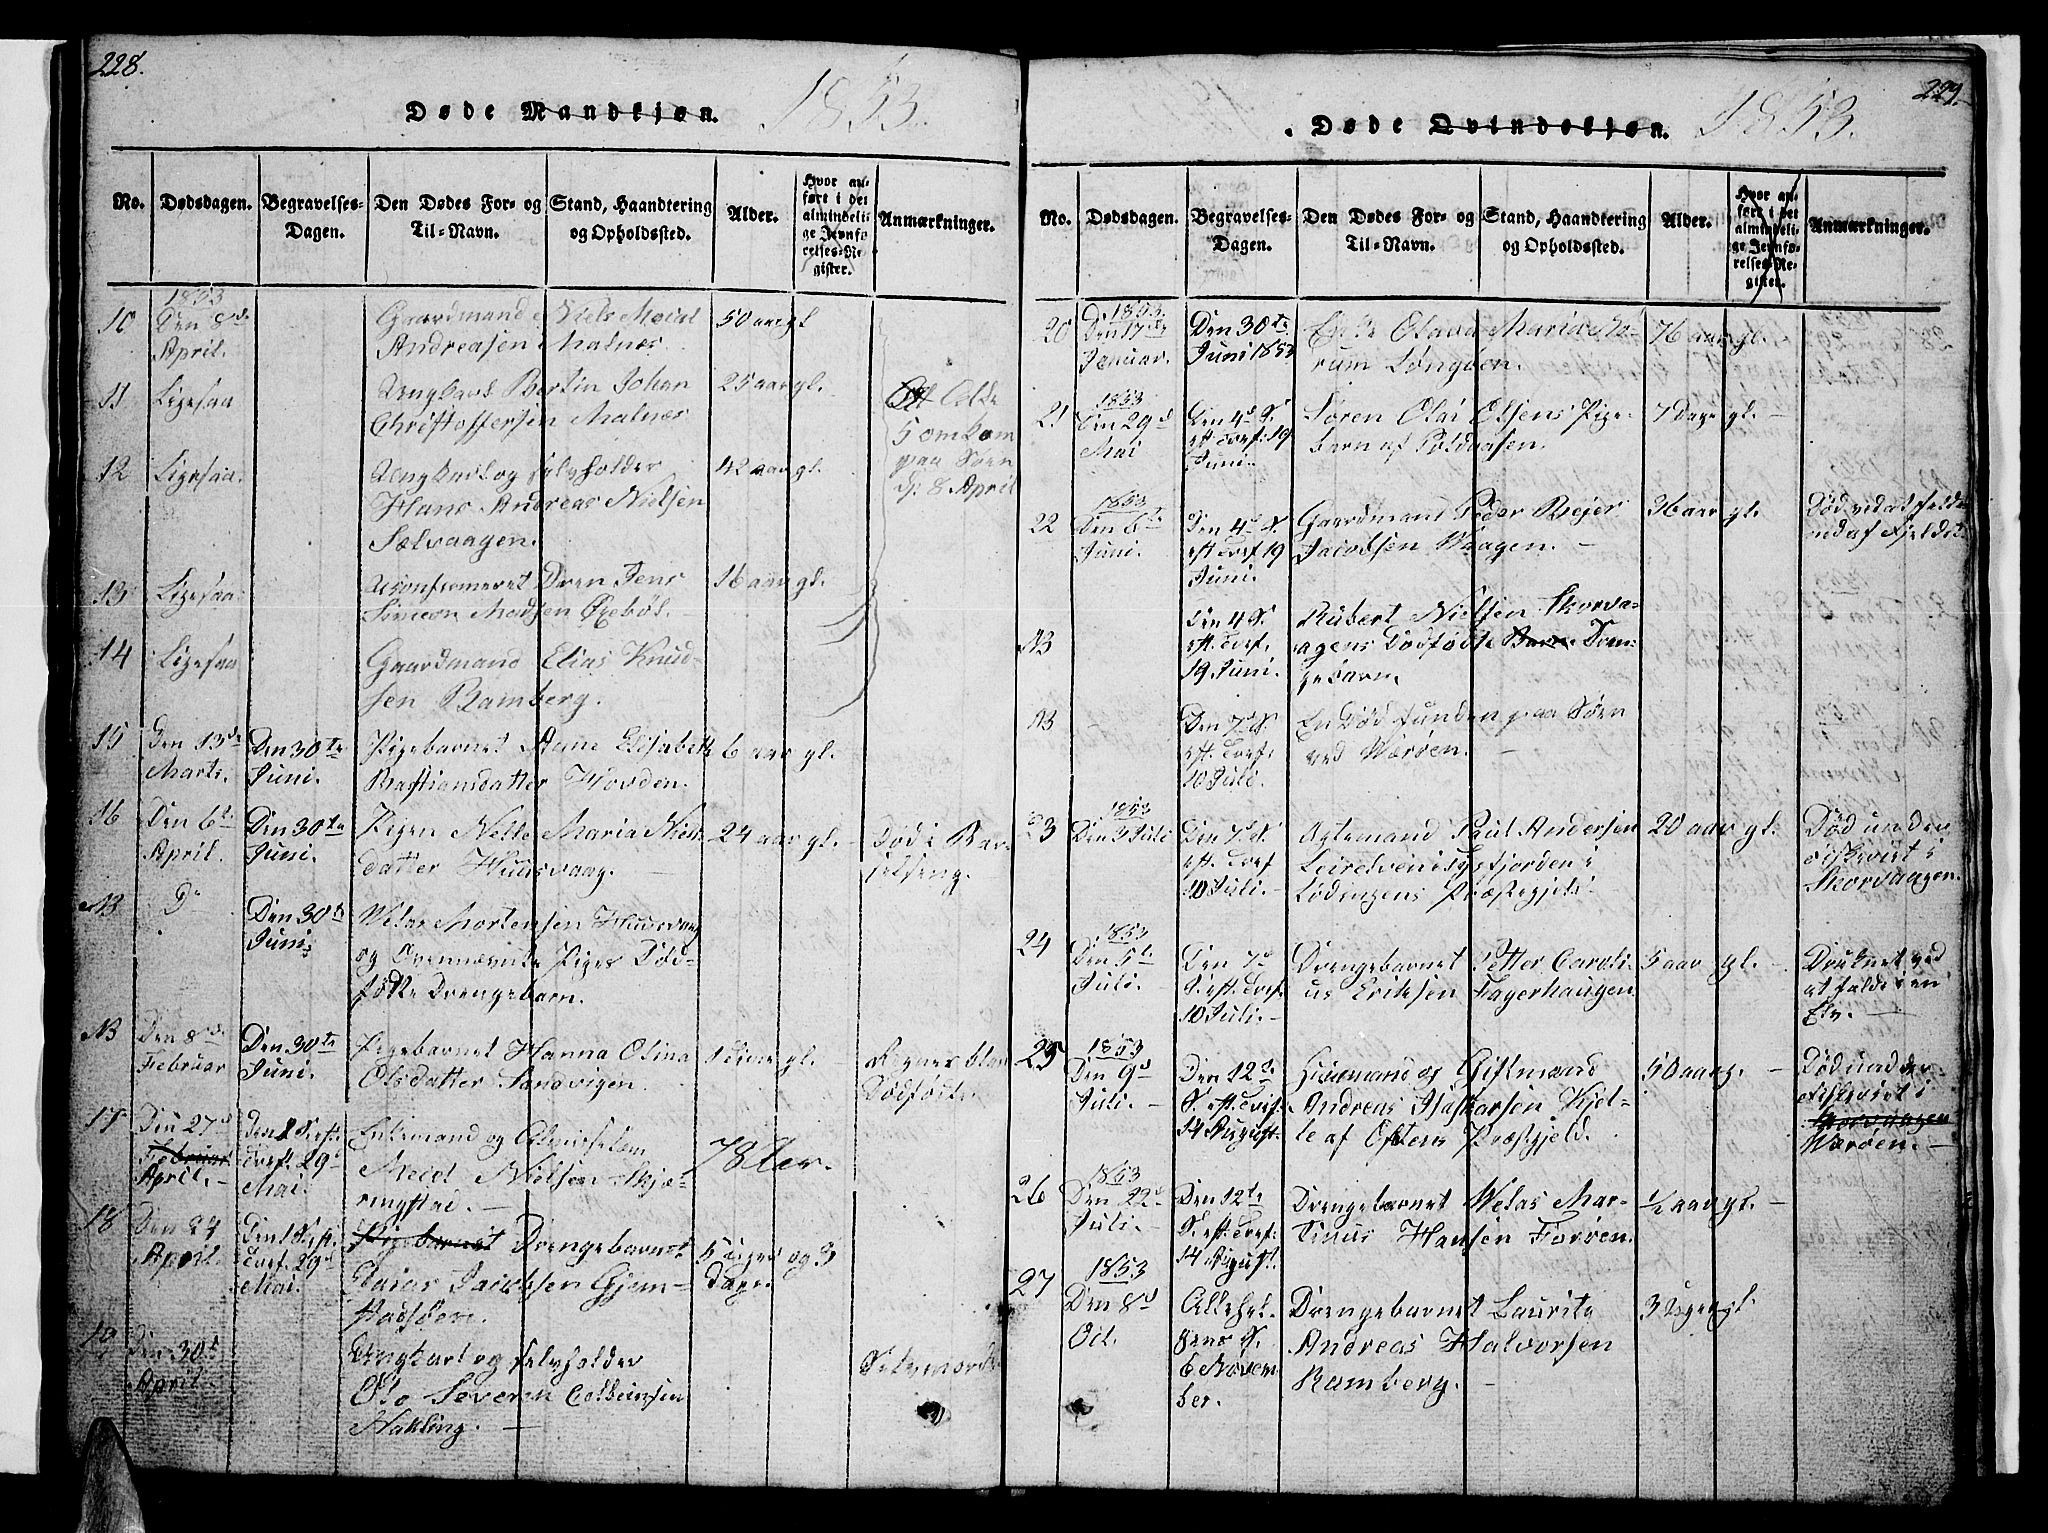 228.
Døde Mandkjøn. 1853.
No.
Dødsdagen.
Begravelses-
Dagen.
Den Dødes For- og
Til-Navn.
Stand, Haandtering
og Opholdssted.
Alder.
Hvor an-
ført i det
almindeli-
ge Jevnfø-
relses-Re-
gister.
Anmærkninger.
10
1853
Den 8de
April.
Gaardmand Niels
Andreasen Malnæs
50 aar gl.
11
Ligesaa
Ungkarl Bertin Johan
Christoffersen Malnæs
25 aar gl.
Alle
5 omkom
paa Søen
d: 8 April
12
Ligesaa
Ungkarl og selvholder
Hans Andreas Nielsen
Sælvaagen.
42 aar gl.
13
Ligesaa
Dren Jens
Simeon Madsen
16 aar gl.
14
Ligesaa
Gaardmand Elias Knud-
sen Ramberg.
15
Den 13de
Marts.
Den 30te
Juni.
Pigebarnet Anne Elisabeth
Bastiansdatter Hovden.
6 aar gl.
16
Den 6te
April.
Den 30te
Juni.
Pigen Nelle Maria Niels
datter Huusvaag.
24 aar gl.
Død i Bar-
selseng.
NB
Do
Den 30te
Juni
Mortensen
og Ovennævnte Piges Død-
fødte Drengebarn.
NB
Den 8de
Februar
Den 30te
Juni.
Pigebarnet Hanna Olina
Olsdatter Sandvigen.
1 time gl.
Dødfødte.
17
Den 27de
Februar
April.
29de
Mai.
Enkemand og
Nielsen Skjæ-
ringstad.
78 Aar.
18
Den 24
April.
29de
Mai.
Pigebarnet Drengebarnet
Elias Jacobsen Gjem-
5 Uger og 3
dage.
19
Den 30te
April.
Ungkarl og selvholder
Ole Severin
Nøkling.
Selvmord
229.
Døde Qvindekjøn. 1853.
No.
Dødsdagen.
Begravelses-
Dagen.
Den Dødes For- og
Til-Navn.
Stand, Haandtering
og Opholdssted.
Alder.
Hvor an-
ført i det
almindeli-
ge Jevnfø-
relses-Re-
gister.
Anmærkninger.
20
1853.
Den 17de
Januar.
Den 30te
Juni 1853
Enke Olava Maria
Langøen.
76 aar gl.
21
1853
Den 29de
Mai
Den 4de S.
eft. Tref: 19
Juni.
Søren Olai Olsens Pige-
barn af
7 Dage gl.
22
1853
Den 6te
Juni.
Den 4de S.
eft Tref 19
Juni.
Gaardmand Peder Bejer
Jacobsen Vaagen.
36 aar gl.
Død ved at falde
ned af Fjeldet
NB
Den 4 S.
eft. Tref.
19 Juni.
Rubert Nielsen Skorva-
agens Dødfødte Barn Dren-
gebarn.
NB
Den 7de S.
eft. Tref:
10 Juli.
En Død funden paa Søen
ved Værøen.
23
1853
Den 3 Juli
Den 7de S.
eft. Tref
10 Juli.
Ægtemand Paul Andersen
Leirelven
Lødingens Præstegjeld.
20 aar gl.
Død under
fiskeriet i
Skorvaagen.
24
1853
Den 5te
Juli.
Den 7de
S. eft. Tref.
10 Juli.
Drengebarnet Petter Caroli-
us Eriksen Fagerhaugen
5 aar gl.
Druknet ved
at falde i en
Elv.
25
1853
Den 9de
Juli.
Den 12te
S. eft. Tref.
14 August.
Huusmand og Giftmand
Andreas Isaksen Kjel-
le af Præstgjeld.
50 aar g.
Død under
fiskeriet i
Skorvaagen
Værøen.
26
1853
Den 22de
Juli.
Den 12te
S. eft. Tref:
14 August.
Drengebarnet Mar-
tinus Hansen Farøen.
1/2 aar gl.
27
1853
Den 8de
Oct.
Allehel-
gens S.
6 Novem-
ber.
Drengebarnet Lauritz
Andreas Halvorsen
Ramberg.
3 Uger gl.